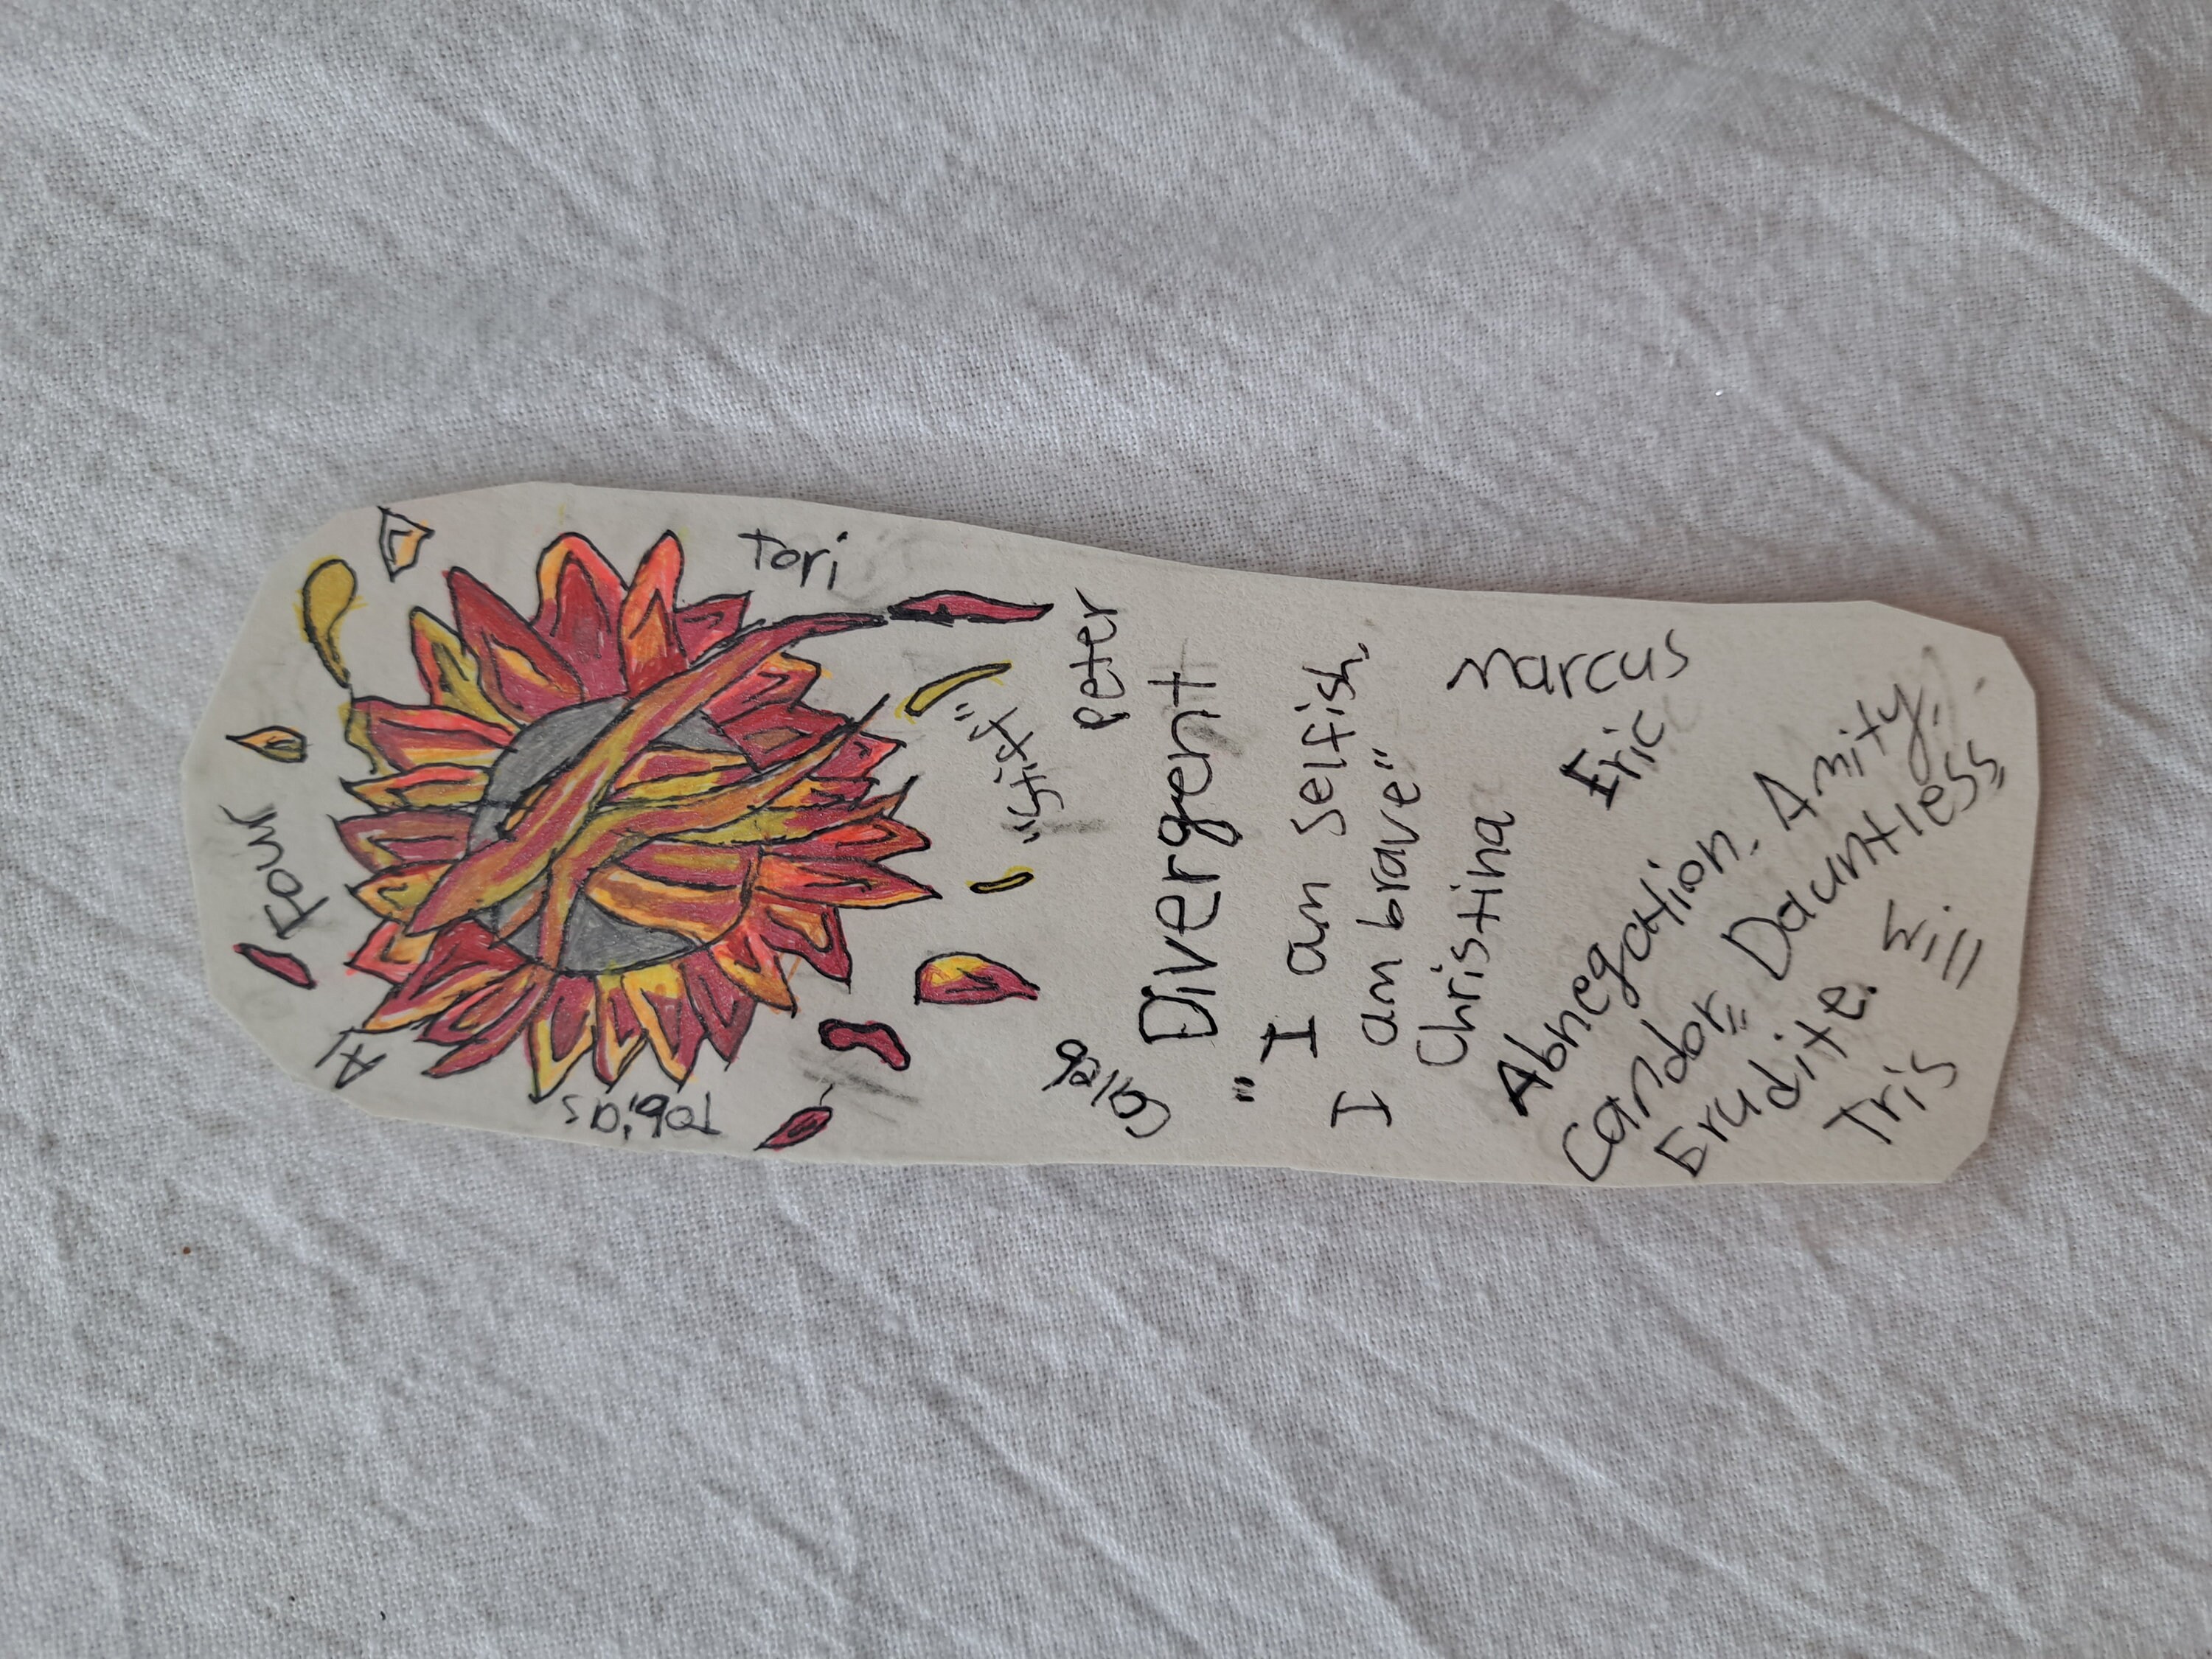 Four
Al
Tori
Tobias
"Stiff"
Peter
Caleb
Divergent
"I am selfish,
I am brave"
Christina
Marcus
Eric
Abnegation. Amity.
Candor Dauntless
Erudite.
Will
Tris